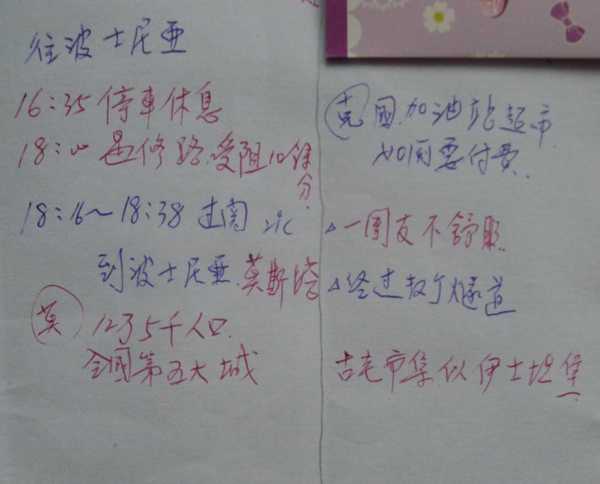 往波士尼亚
16:35 停車休息
18:00 遇修路.受阻10餘
分
18:16~18:38 过関
到波士尼亚.莫斯塔
莫 12万5千人口.
全国第五大城
克 国.加油站超市
如厠要付费.
△一团友不舒服.
△经过数个隧道
古老市集似伊士坦堡